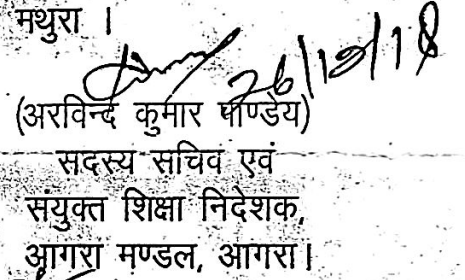 मथुरा ।
26/12/18
(अरविन्द कुमार पाण्डेय)
सदस्य सचिव एवं
संयुक्त शिक्षा निदेशक,
आगरा मण्डल, आगरा।